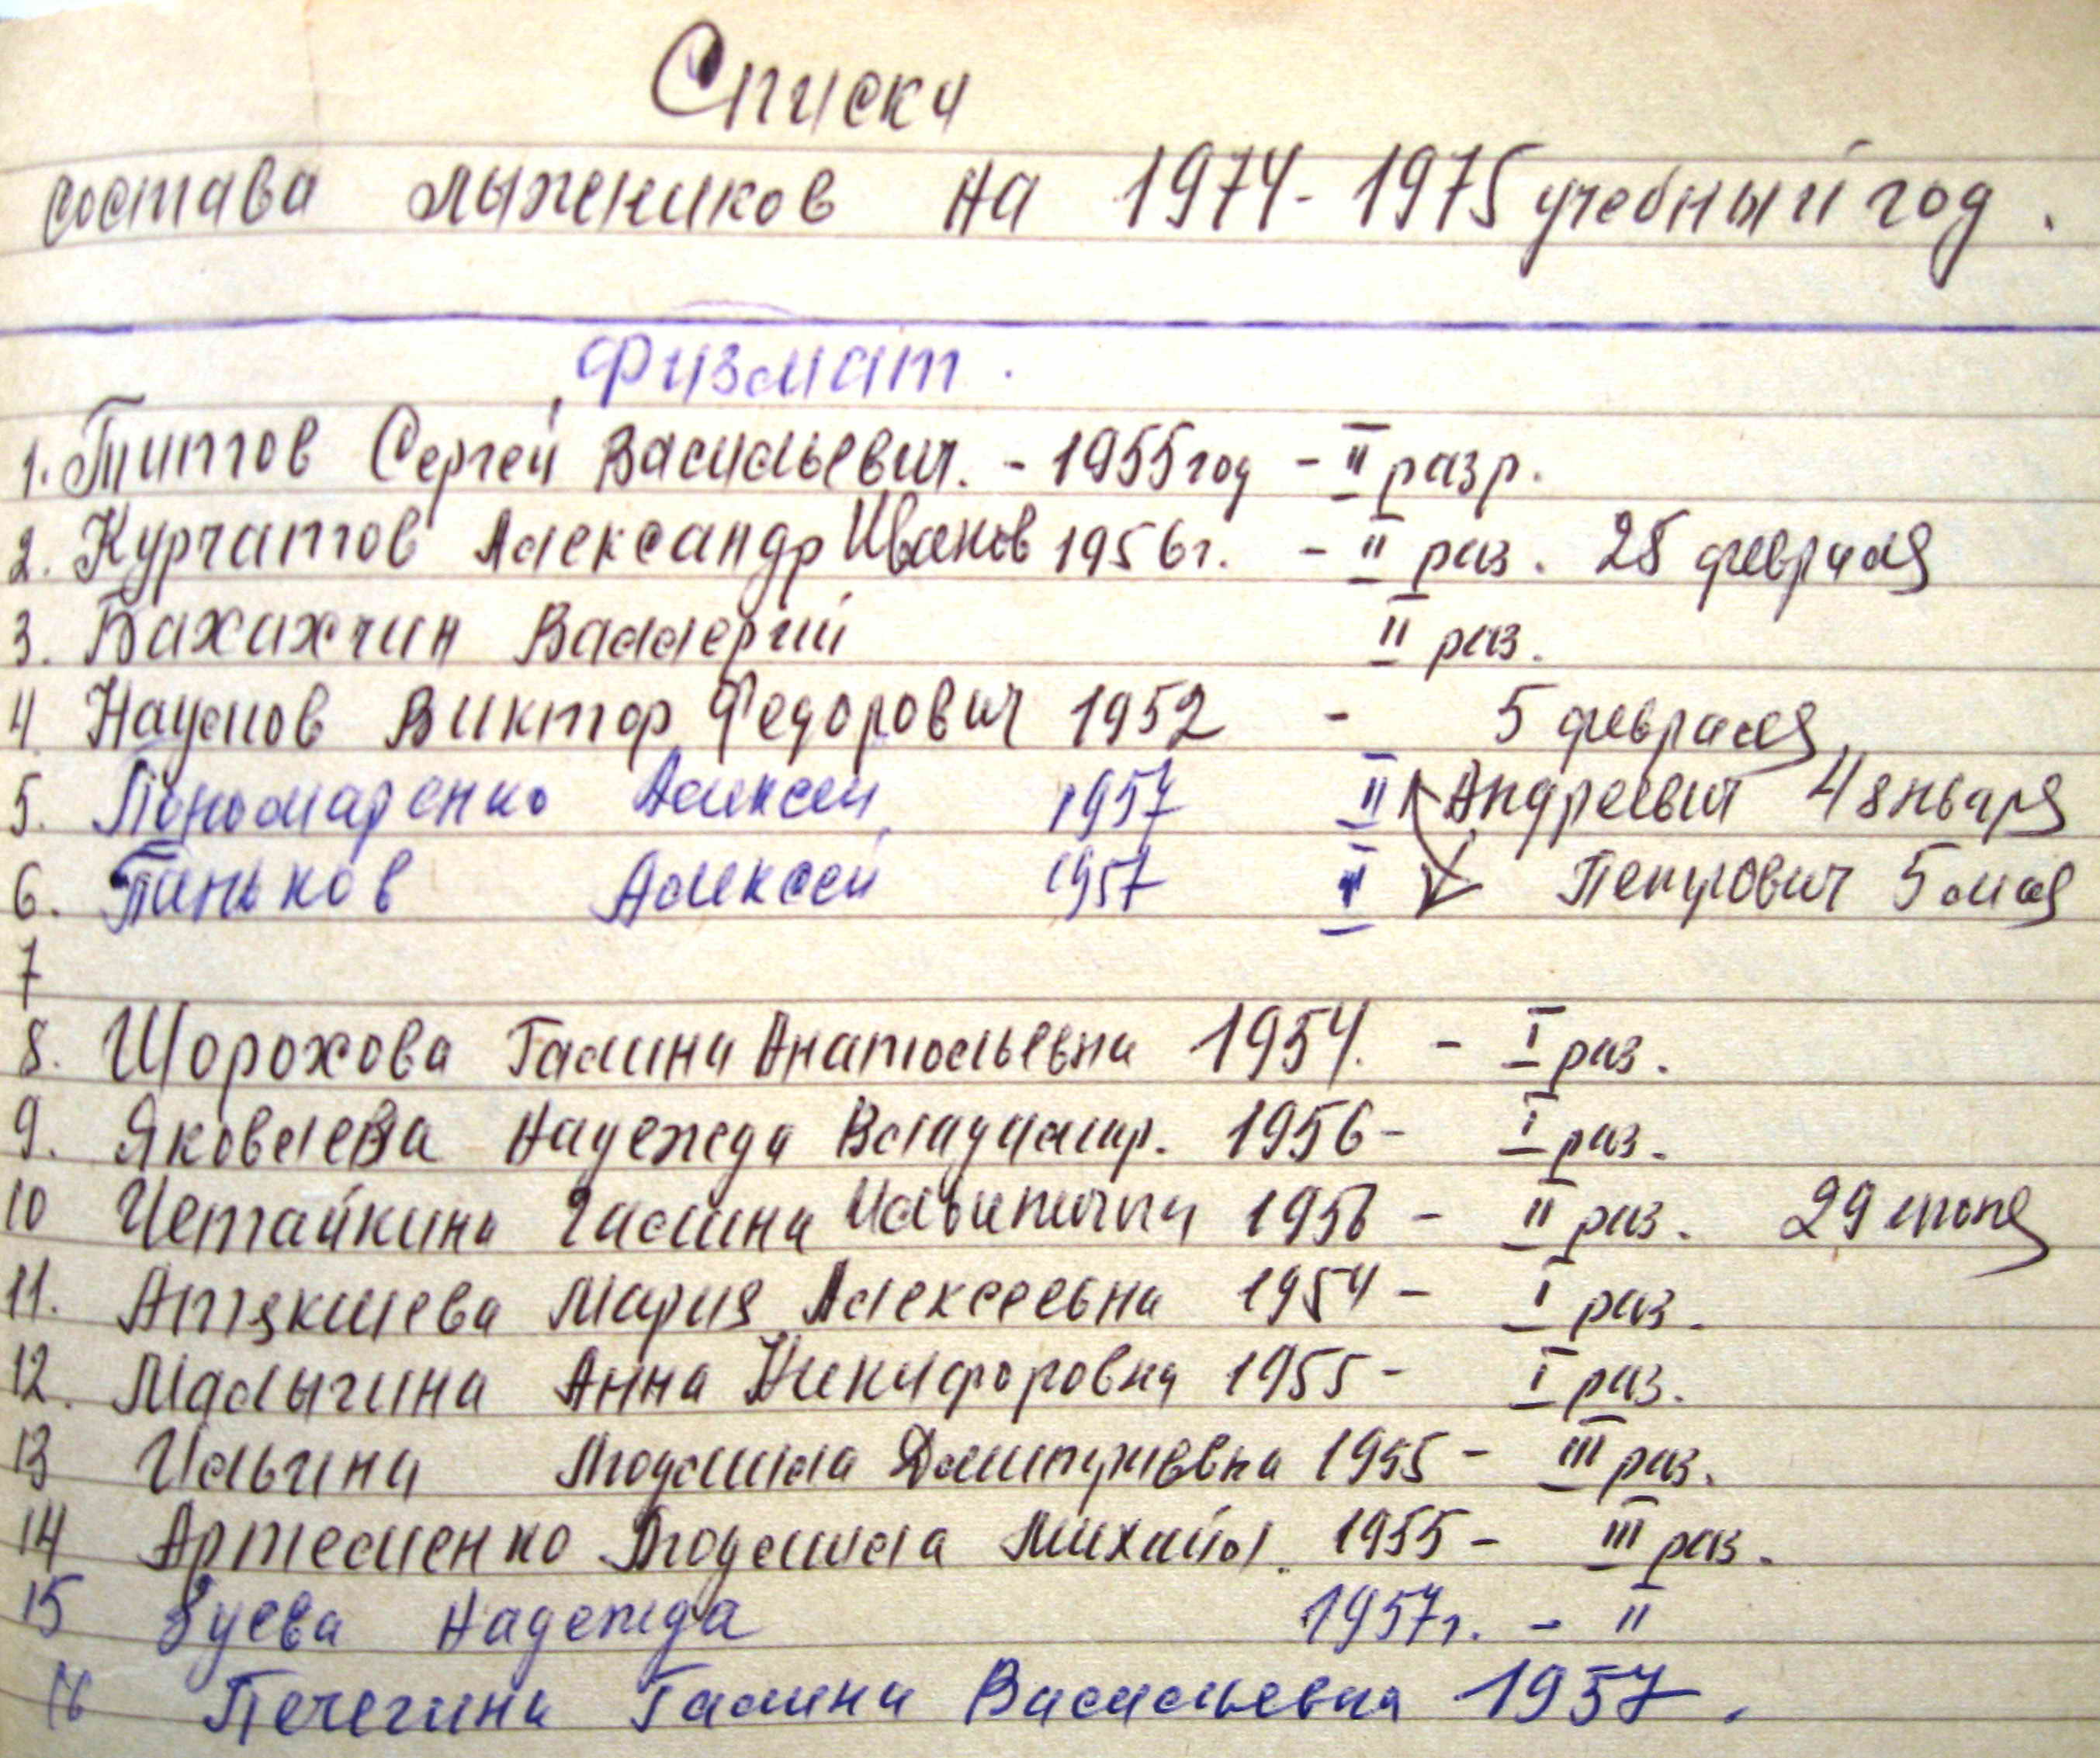 Списки
состава лыжников на 1974-1975 учебный год.
Физмат.
1. Титов Сергей Васильевич. - 1955 год - II разр.
2. Курчатов Александр Иванов 1956 г. - II раз. 28 февраля
3. Бахахчин Валерий II раз.
4 Наумов Виктор Федорович 1952 - 5 февраля
5. Пономаренко Алексей 1957 II Андреевич 4 января
6. Паньков Алексей 1957 II Петрович 5 мая
7
8. Шорохова Галина Анатольевна 1954. - I раз.
9. Яковлева Надежда Владимир. 1956 - I раз.
10 Четайкина Галина 1956 - II раз. 29 июня
11. Атякшева Мария Алексеевна 1954 - I раз.
12. Малыгина Анна Никифоровна 1955 - I раз.
13 Ильина Людмила Дмитриевна 1955 - III раз.
14 Артеменко Людмила Михайл. 1955 - III раз.
15 Зуева Надежда 1957 г. - II
16 Печегина Галина Васильевна 1957.